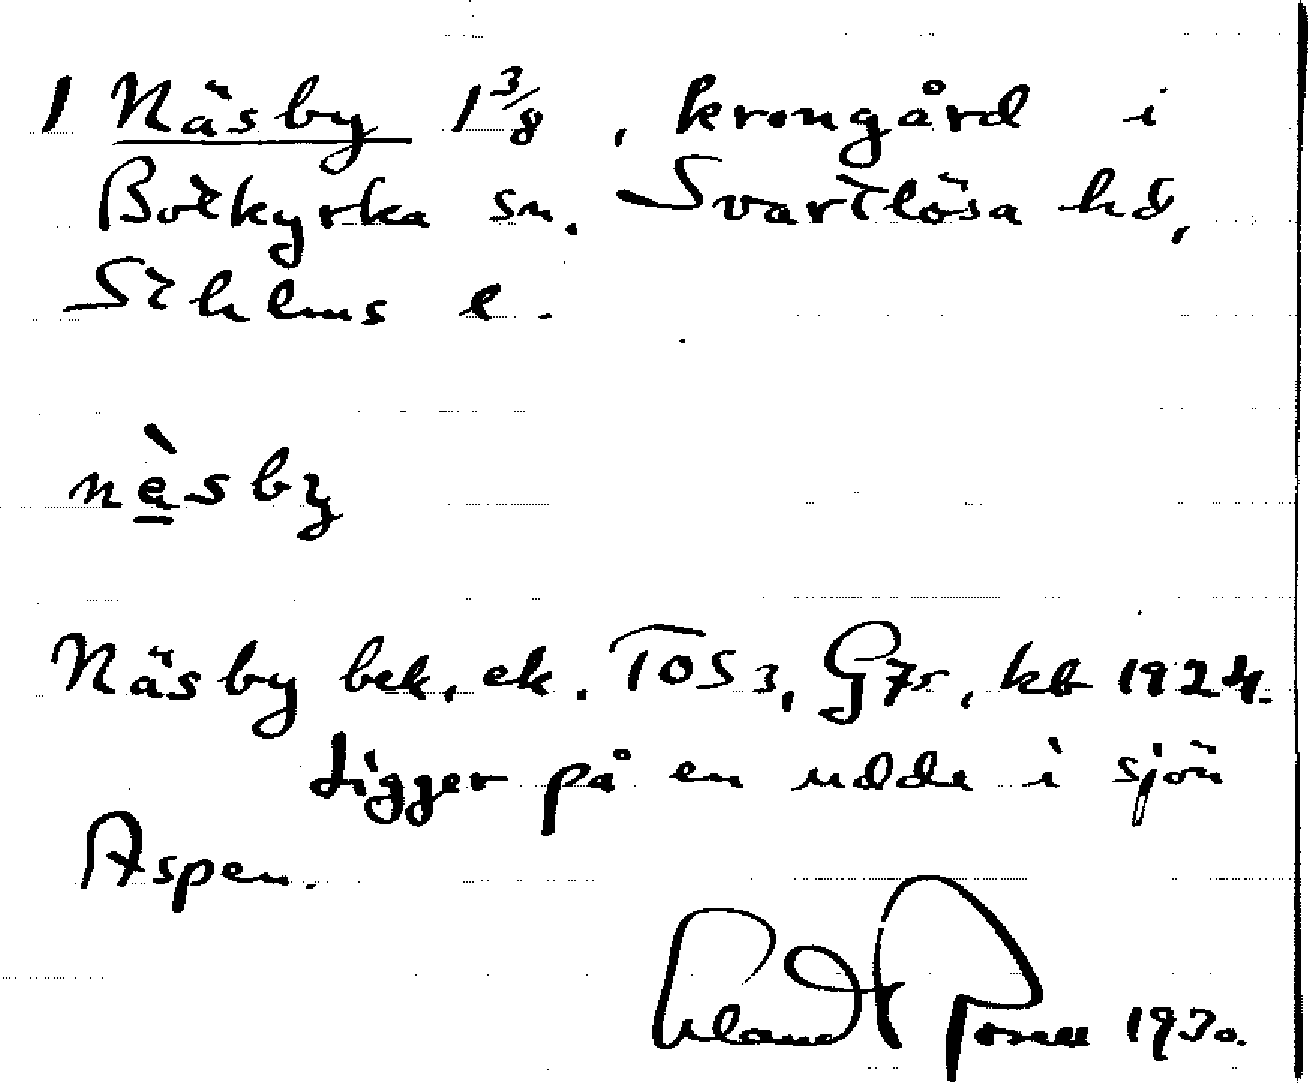 1 Näsby 1 3/8, krongård i
Botkyrka sn. Svartlösa hd,
Sthlms l.
nàsby
Näsby bek, ek. TOS 3, G7r, kb 1924.
Ligger på en udde i sjön
Aspen.
Erland Rosell 1930.